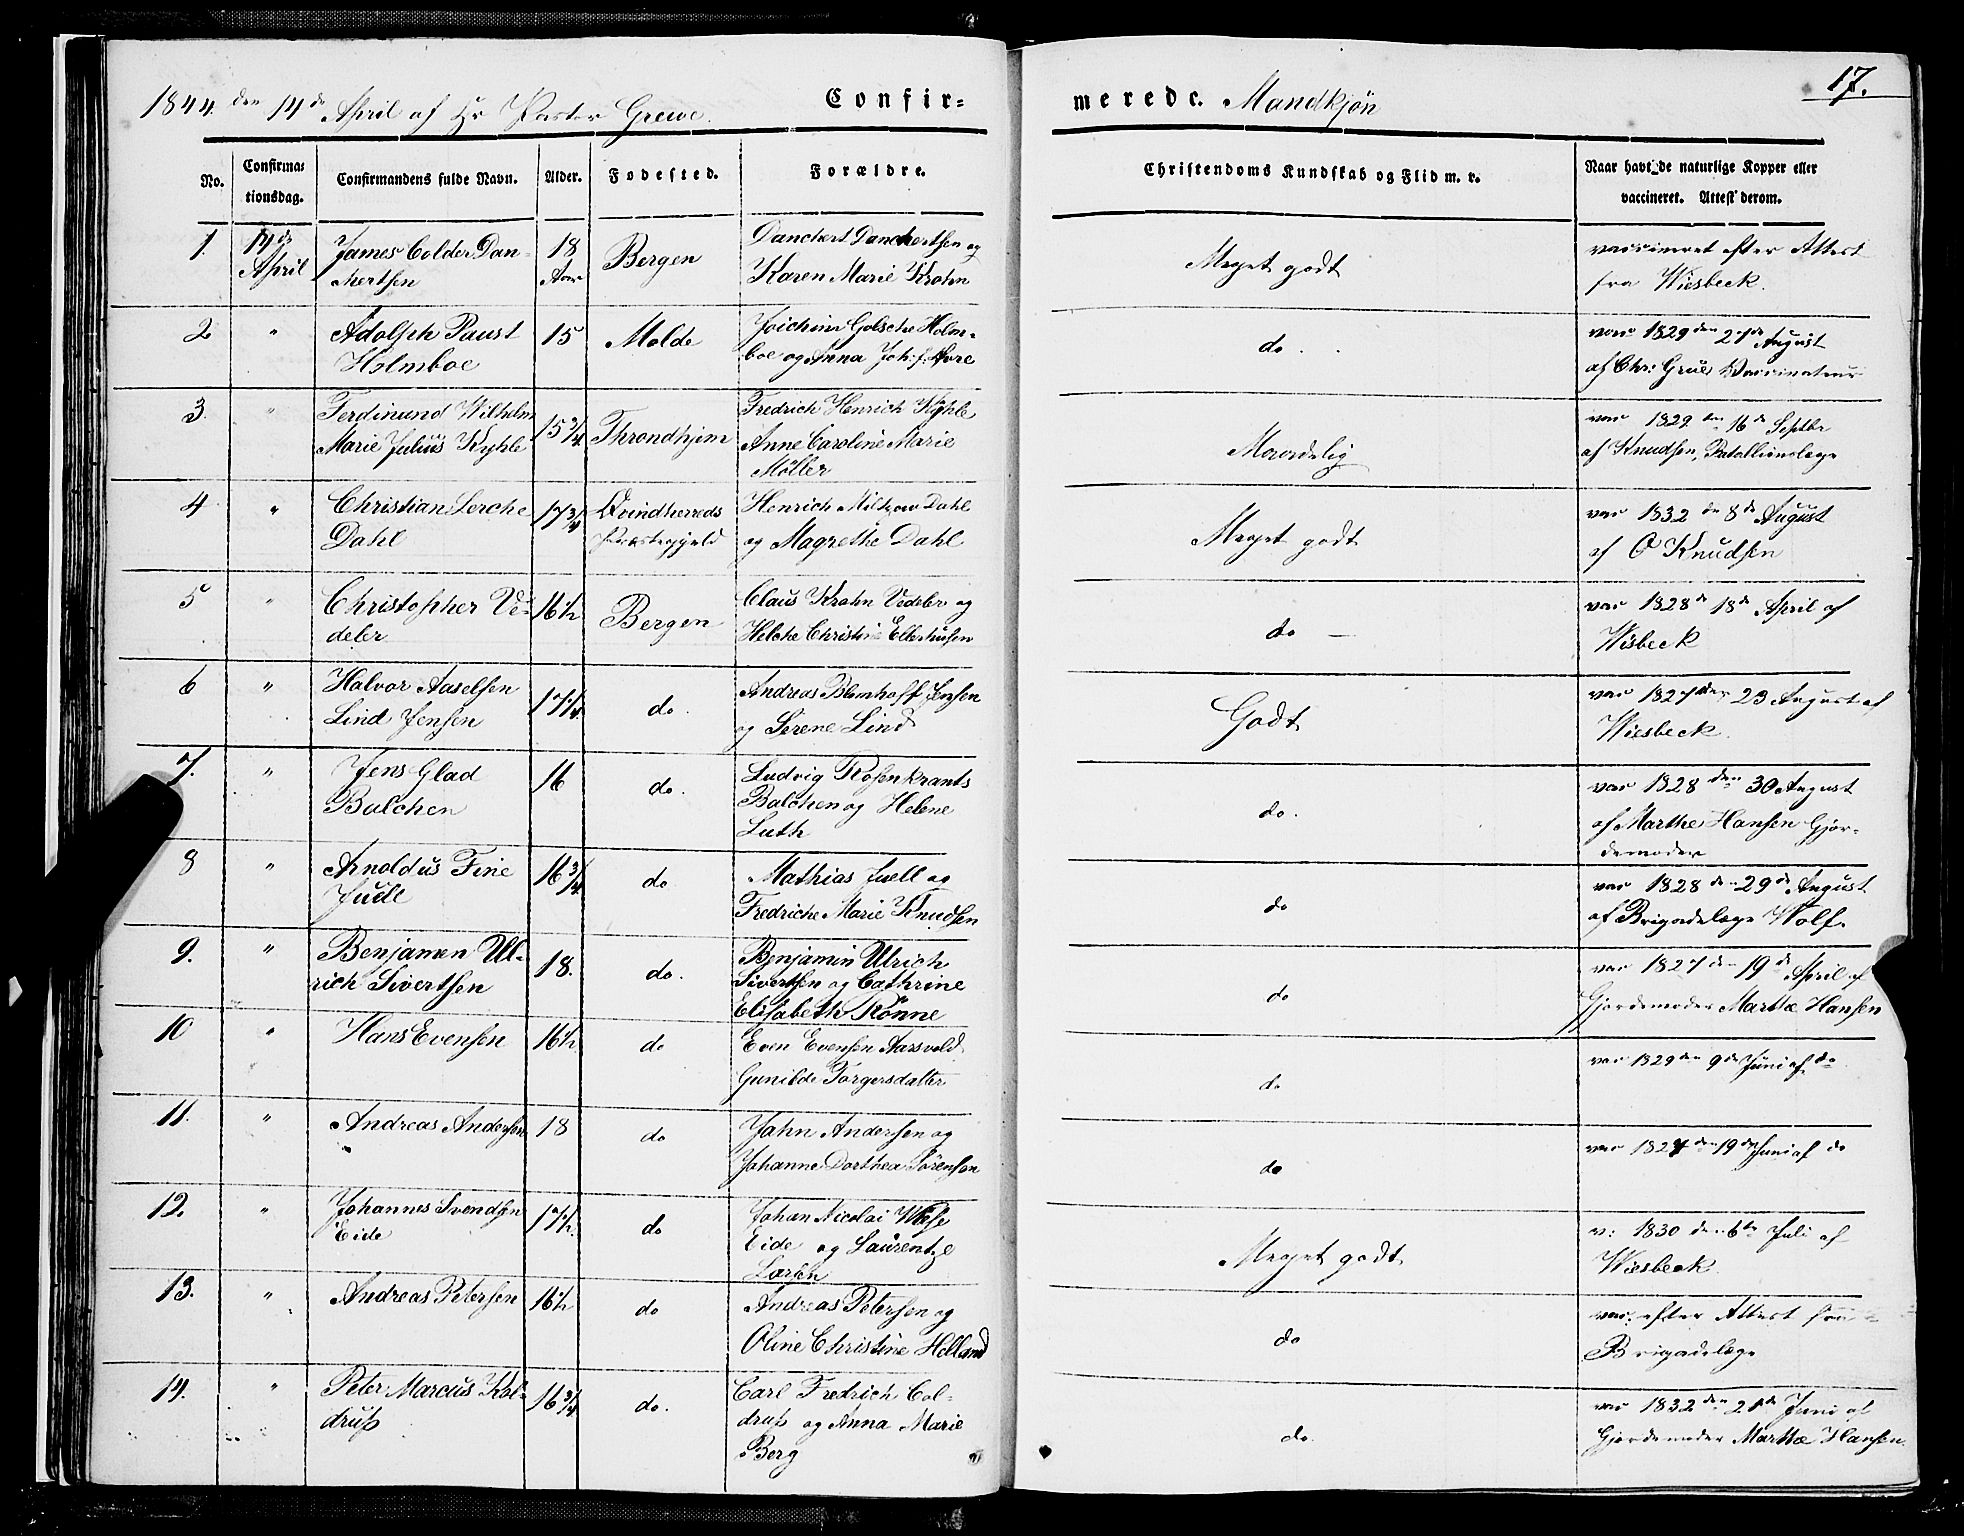 1844. den 14de April af Hr Pastor Grewe. Confir-
meredc. Mandkjøn 17.
No. Confirma-tionsdag. Confirmandens fulde Navn. Alder. Fødested. Forældre. Christendoms Kundskab og Flid m. v. Naar havt de naturlige Kopper eller vaccineret. Attest derom.
1. 14de April James Colder Dan-
chertsen 18 Aar Bergen Danchert Danchertsen og
Karen Marie Krohn Meget godt vaccineret efter Attest
fra Wiesbeck.
2 " Adolph Paust
Holmboe 15 Molde Joichim Golsche Holm-
boe og Anna Joh: do. vac 1829 den 27de August
af Chr: Vaccinateur
3. " Ferdinand Wilhelm
Marie Julius Kyhle 15 3/4 Throndhjem Fredrich Henrich Kyhle
Anne Caroline Marie
Møller Maadelig vac 1829 den 16de Septbr
af Knudsen, Batallionslæge
4 " Christian Lerche
Dahl 17 3/4 Qvindherreds
Præstegjeld Henrich Miltzow Dahl
og Magrethe Dahl Meget godt vac 1832 d 8de August
af O Knudsen
5 " Christopher Ve-
deler 16 1/2 Bergen Claus Krohn Vedeler og
Helche Christine Ellerhusen do - vac 1828 d 18de April af
Wisbeck
6 " Halvor Aaselsen
Lind Jensen 17 1/4 do. Andreas Blomhoff Jensen
og Serene Lind Godt vac 1827 den 23 August af
Wiesbeck.
7. " Jens Glad
Balchen 16 do. Ludvig Rosenkrants
Balchen og Helene
Luth do. vac 1828 den 30 August
af Marthe Hansen Gjor-
demoder
8 " Arnoldus Fine
Juell 16 3/4 do Mathias Juell og
Fredriche Marie Knudsen do vac 1828 den 29de August
af Brigadelæge Wolf.
9. " Benjamen Ul-
rich Sivertsen 18. do. Benjamin Ulrich
Sivertsen og Cathrine
Elisabeth Rønne do vac 1827 den 19de April af
Gjordemoder Marthe Hansen
10 " Hans Evensen 16 1/2 do Even Evensen Aarsvold
Gunilde Torgersdatter do vac 1829 den 9de Juni af do
11. " Andreas Andersen 18 do John Andersen og
Johanne Dorthea Sørensen do vac 1827 den 19de Juni af do
12. " Johannes Svendsen
Eide 17 1/2 do Johan Nicolai Wiese
Eide og Laurentze
Larsen Meget godt v: 1830 den 6te Juli af
Wiesbeck
13. " Andreas Petersen 16 1/2 do Andreas Petersen og
Oline Christine Helland do vac: efter Attest fra
Brigadelæge
14. " Peter Marcus Kol-
drup 16 3/4 do. Carl Fredrich Col-
drup og Anna Marie
Berg do. vac 1832 den 21de Juni af
Gjordemoder Marthe Hansen